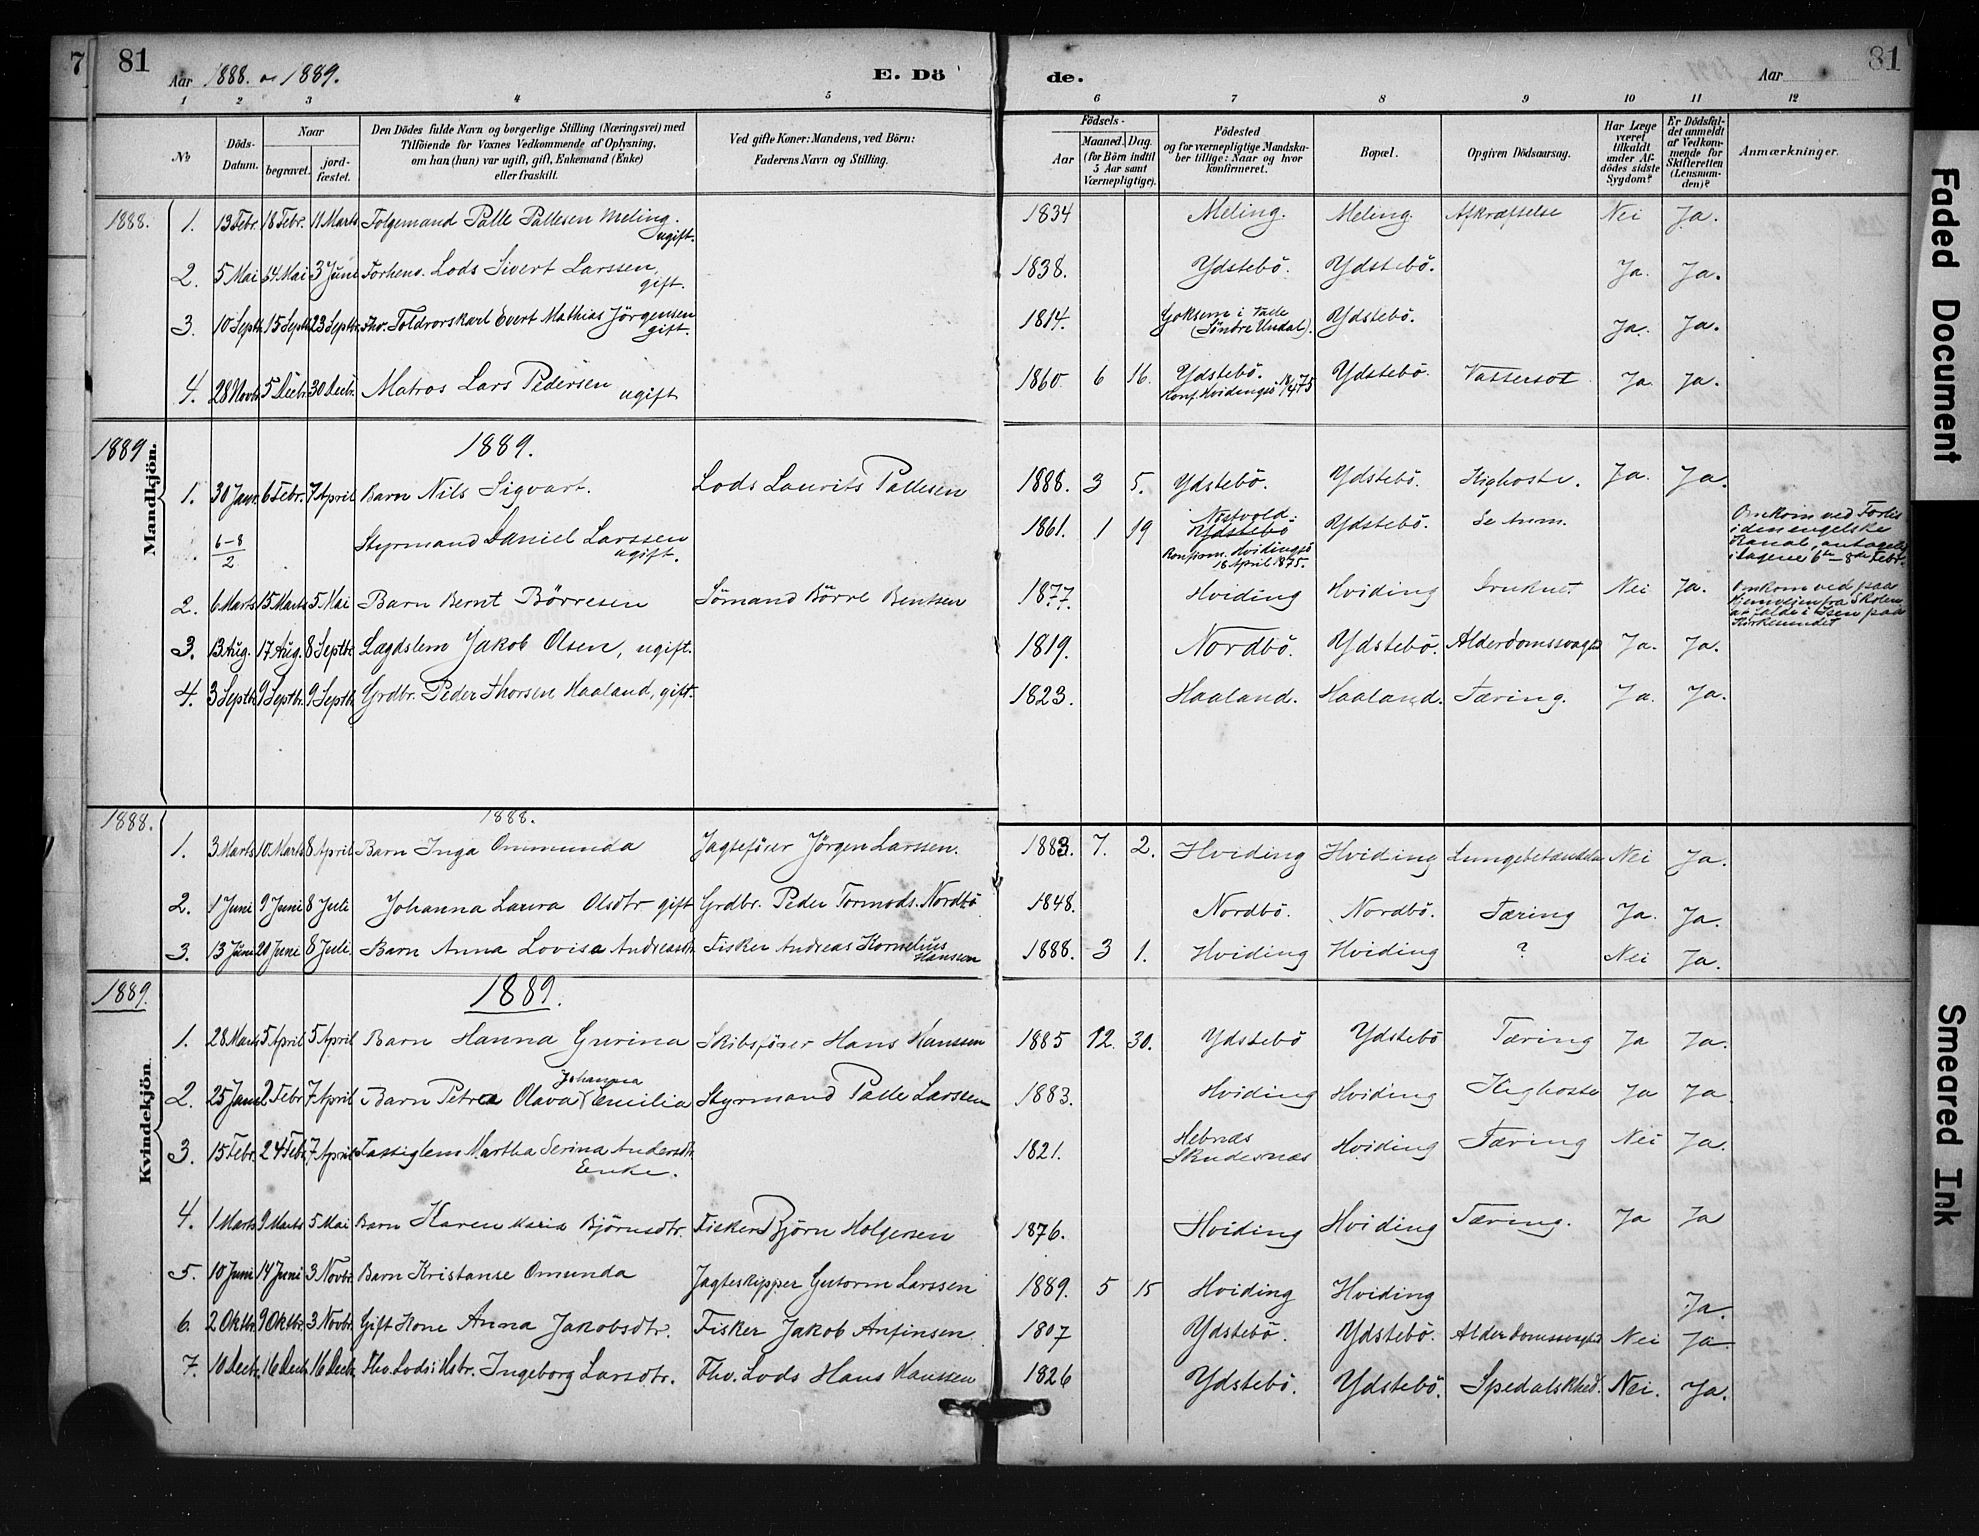 81
Aar 1888. og 1889.
E. Dö
de.
Aar
81
1 2 3 4 5 6 7 8 9 10 11 12
No
Döds-Datum.
Naar
begravet.
jord-fæstet.
Den Dödes fulde Navn og borgerlige Stilling (Næringsvei) med
Tilföiende for Voxnes Vedkommende af Oplysning,
om han (hun) var ugift, gift, Enkemand (Enke)
eller fraskilt.
Ved gifte Koner: Mandens, ved Börn:
Faderens Navn og Stilling.
Födsels-
Aar
Maaned. Dag.
(for Börn indtil
5 Aar samt
Værnepligtige).
Födested
og for værnepligtige Mandskaber tillige: Naar og hvor
konfirmeret.
Bopæl.
Opgiven Dödsaarsag.
Har Læge
været
tilkaldt
under Afdödes sidste
Sygdom?
Er Dödsfaldet anmeldt
af Vedkommende for
Skifteretten
(Lensmanden)?
Anmærkninger.
Mandkjön.
1888. 1. 13 Febr. 18 Febr. 11 Marts Folgemand Palle Pallesen Meling. ugift. 1834 Meling. Meling. Afkræftelse Nei Ja.
2. 5 Mai 14 Mai 3 Juni Forhenv. Lods Sivert Larssen, gift. 1838. Ydstebö. Ydstebö. Ja. Ja.
3. 10 Septb. 15 Septb. 23 Septb. Fhv. Toldrorskarl Evert Mathias Jörgensen gift. 1814. i Valle (Söndre Undal). Ydstebö. Ja. Ja.
4. 28 Novb. 5 Decbr. 30 Decbr. Matros Lars Pedersen ugift 1860. 6 16. Ydstebö. Konf. Hvidingsö 18/4 75 Ydstebö. Vattersot Ja. Ja.
1889
1889.
1. 30 Jan. 6 Febr. 7 April Barn Nils Sigvart. Lods Laurits Pallesen 1888. 3 5. Ydstebö. Ydstebö. Kighoste. Ja. Ja.
6-8/2 Styrmand Daniel Larssen ugift. 1861. 1 19 Ydstebö Konfirm. Hvidingsö 18 April 1875. Ydstebö. Se Anm. Omkom ved Forlis i den engelske Kanal, antagelig i dagene 6te - 8de Febr.
2. 6 Marts 15 Marts 5 Mai Barn Bernt Börresen Sömand Börre Bentsen 1877. Hviding Hviding Druknet Nei Ja. Omkom ved paa Hjemveien fra Skolen at falde i Isen paa Kirkesundet
3. 13 Aug. 17 Aug. 8 Septbr. Lægdslem Jakob Olsen, ugift. 1819. Nordbö. Ydstebö. Alderdomssvaghed Ja. Ja.
4. 3 Septb. 9 Septbr. 9 Septb. Grdbr. Peder Thorsen Haaland, gift. 1823. Haaland. Haaland. Tæring. Ja. Ja.
Kvindekjön.
1888.
1888.
1. 3 Marts 10 Marts 8 April Barn Inga Ommunda Jagtefører Jörgen Larssen. 1883. 7. 2. Hviding Hviding Lungebetændelse Nei Ja.
2. 1 Juni 9 Juni 8 Juli Johanna Laura Olsdtr gift Grdbr. Peder Tormods. Nordbö 1848. Nordbö. Nordbö. Tæring Ja. Ja.
3. 13 Juni 20 Juni 8 Juli Barn Anna Lovisa Andreasdtr. Fisker Andreas Kornelius Hanssen 1888. 3 1. Hviding Hviding ? Nei Ja.
1889.
1889.
1. 28 Marts 5 April 5 April Barn Hanna Gurina Skibsfører Hans Hanssen 1885 12. 30. Ydstebö Ydstebö Tæring Ja Ja.
2. 25 Jan. 2 Febr. 7 April Barn Petrea Olava Johanna Emilia Styrmand Palle Larssen 1883. Hviding Hviding Kighoste Ja Ja
3. 15 Febr. 24 Febr. 7 April Fattiglem Martha Serina Andersdtr. Enke. 1821. Hebnæs Skudesnæs Hviding Tæring Nei Ja.
4. 1 Marts 9 Marts 5 Mai Barn Karen Maria Björnsdtr. Fisker Björn Holgersen 1876. Hviding Hviding Tæring. Ja Ja
5. 10 Juni 14 Juni 3 Novbr. Barn Kristanse Omunda Jagteskipper Gutorm Larssen 1889. 5 15 Hviding Hviding Ja.
6. 2 Oktbr. 9 Oktbr. 3 Novbr. Gift Kone Anna Jakobsdtr. Fisker Jakob Anfinsen 1807 Ydstebö. Ydstebö. Alderdomssvaghed Nei Ja
7. 10 Decb. 16 Decb. 16 Decb. Fhv. Lods: Hstr. Ingeborg Larsdtr. Fhv. Lods Hans Hanssen 1826 Ydstebö. Ydstebö. Spedalskhed Nei. Ja.
Faded Document
Smeared Ink